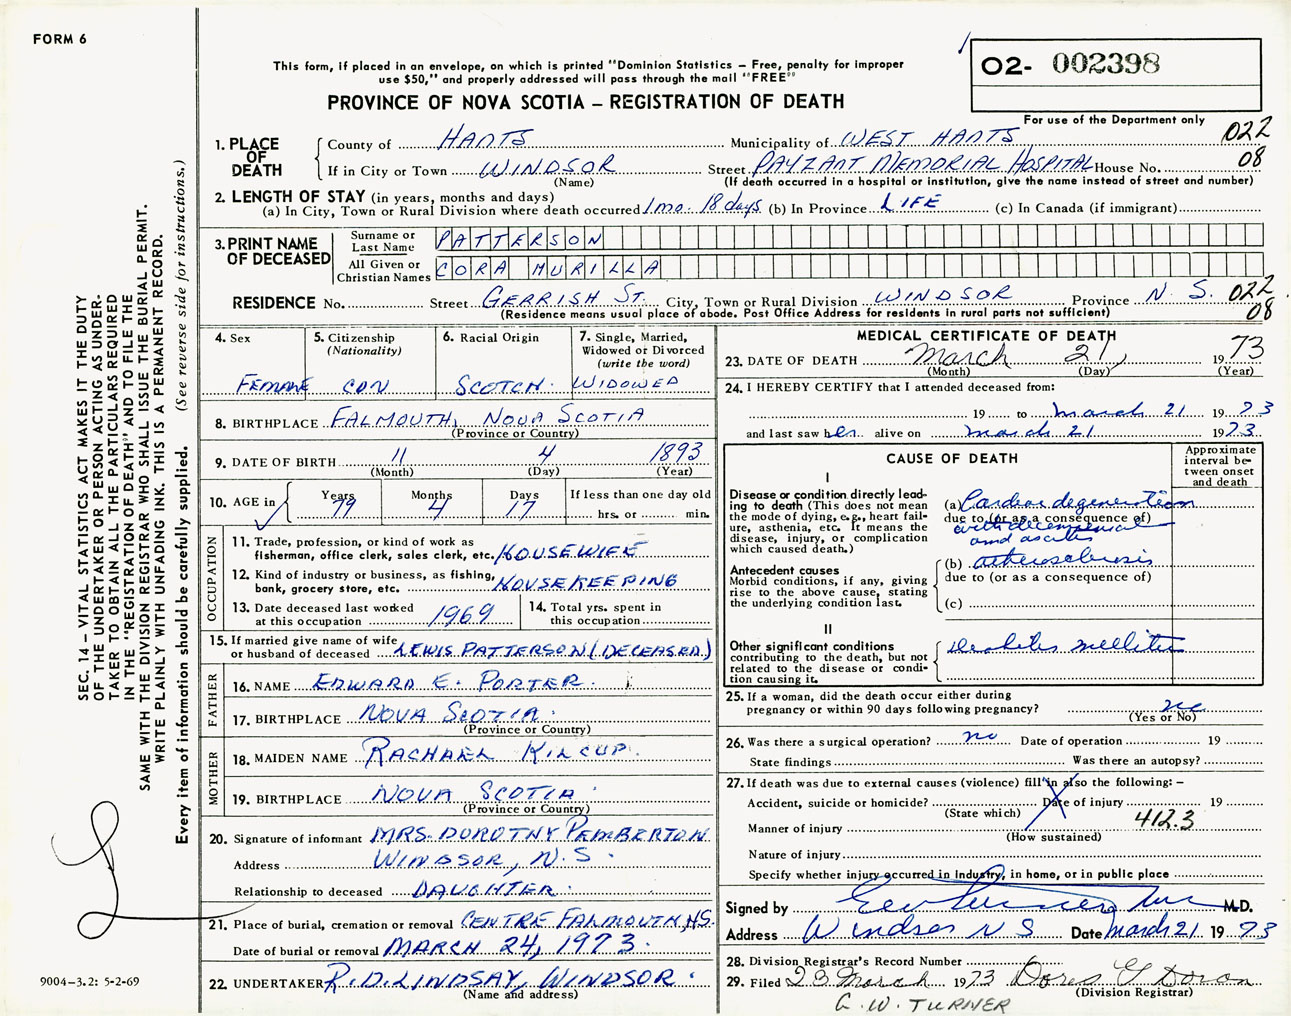 FORM 6
This form, if placed in an envelope, on which is printed "Dominion Statistics – Free, penalty for improper
use $50," and properly addressed will pass through the mail "FREE"
PROVINCE OF NOVA SCOTIA – REGISTRATION OF DEATH
02- 002398
For use of the Department only
SEC. 14 – VITAL STATISTICS ACT MAKES IT THE DUTY
OF THE UNDERTAKER OR PERSON ACTING AS UNDER-
TAKER TO OBTAIN ALL THE PARTICULARS REQUIRED
IN THE "REGISTRATION OF DEATH" AND TO FILE THE
SAME WITH THE DIVISION REGISTRAR WHO SHALL ISSUE THE BURIAL PERMIT.
WRITE PLAINLY WITH UNFADING INK. THIS IS A PERMANENT RECORD.
Every item of information should be carefully supplied. (See reverse side for instructions.)
1. PLACE OF DEATH
County of HANTS Municipality of WEST HANTS 022
If in City or Town WINDSOR Street PAYZANT MEMORIAL HOSPITAL House No. 08
(Name) (If death occurred in a hospital or institution, give the name instead of street and number)
2. LENGTH OF STAY (in years, months and days)
(a) In City, Town or Rural Division where death occurred 1 mo. 18 days (b) In Province LIFE (c) In Canada (if immigrant)
3. PRINT NAME OF DECEASED
Surname or Last Name PATTERSON
All Given or Christian Names CORA MURILLA
RESIDENCE No. Street GERRISH ST. City, Town or Rural Division WINDSOR Province N. S. 022
(Residence means usual place of abode. Post Office Address for residents in rural parts not sufficient) 08
4. Sex 5. Citizenship (Nationality) 6. Racial Origin 7. Single, Married, Widowed or Divorced (write the word)
FEMALE CDN SCOTCH WIDOWED
8. BIRTHPLACE FALMOUTH, NOVA SCOTIA
(Province or Country)
9. DATE OF BIRTH 11 4 1893
(Month) (Day) (Year)
10. AGE in Years Months Days If less than one day old
79 4 17 hrs. or min.
OCCUPATION
11. Trade, profession, or kind of work as
fisherman, office clerk, sales clerk, etc. HOUSEWIFE
12. Kind of industry or business, as fishing,
bank, grocery store, etc. HOUSEKEEPING
13. Date deceased last worked
at this occupation 1969
14. Total yrs. spent in
this occupation
15. If married give name of wife
or husband of deceased LEWIS PATTERSON (DECEASED)
FATHER
16. NAME EDWARD E. PORTER
17. BIRTHPLACE NOVA SCOTIA
(Province or Country)
MOTHER
18. MAIDEN NAME RACHAEL KILCUP
19. BIRTHPLACE NOVA SCOTIA
(Province or Country)
20. Signature of informant MRS. DOROTHY PEMBERTON
Address WINDSOR, N. S.
Relationship to deceased DAUGHTER
21. Place of burial, cremation or removal CENTRE FALMOUTH, N.S.
Date of burial or removal MARCH 24, 1973.
22. UNDERTAKER R. D. LINDSAY, WINDSOR.
(Name and address)
9004-3.2: 5-2-69
MEDICAL CERTIFICATE OF DEATH
23. DATE OF DEATH March 21, 1973
(Month) (Day) (Year)
24. I HEREBY CERTIFY that I attended deceased from:
19 to march 21 1973
and last saw her alive on march 21 1973
CAUSE OF DEATH
Approximate interval between onset and death
I
Disease or condition directly lead-
ing to death (This does not mean
the mode of dying, e.g., heart fail-
ure, asthenia, etc. It means the
disease, injury, or complication
which caused death.)
(a) Cardeo degeneration
due to (or as a consequence of)
with decompensation
and ascites
Antecedent causes
Morbid conditions, if any, giving
rise to the above cause, stating
the underlying condition last.
(b) atherosclerosis
due to (or as a consequence of)
(c)
II
Other significant conditions
contributing to the death, but not
related to the disease or condi-
tion causing it.
Diabetes mellitus
25. If a woman, did the death occur either during
pregnancy or within 90 days following pregnancy? no
(Yes or No)
26. Was there a surgical operation? no Date of operation 19
State findings Was there an autopsy?
27. If death was due to external causes (violence) fill in also the following: –
Accident, suicide or homicide? Date of injury 19
(State which)
Manner of injury 412.3
(How sustained)
Nature of injury
Specify whether injury occurred in Industry, in home, or in public place
Signed by M.D.
Address Windsor N S Date march 21 1973
28. Division Registrar's Record Number
29. Filed 23 March 1973 Doris
(Division Registrar)
G. W. TURNER